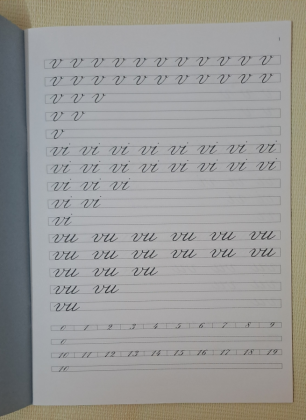 1
v v v v v v v v v v v
v v v v v v v v v v v
v v v
v v
v
vi vi vi vi vi vi vi vi
vi vi vi vi vi vi vi vi
vi vi vi
vi vi
vi
vu vu vu vu vu vu
vu vu vu vu vu vu
vu vu vu
vu vu
vu
0 1 2 3 4 5 6 7 8 9
0
10 11 12 13 14 15 16 17 18 19
10